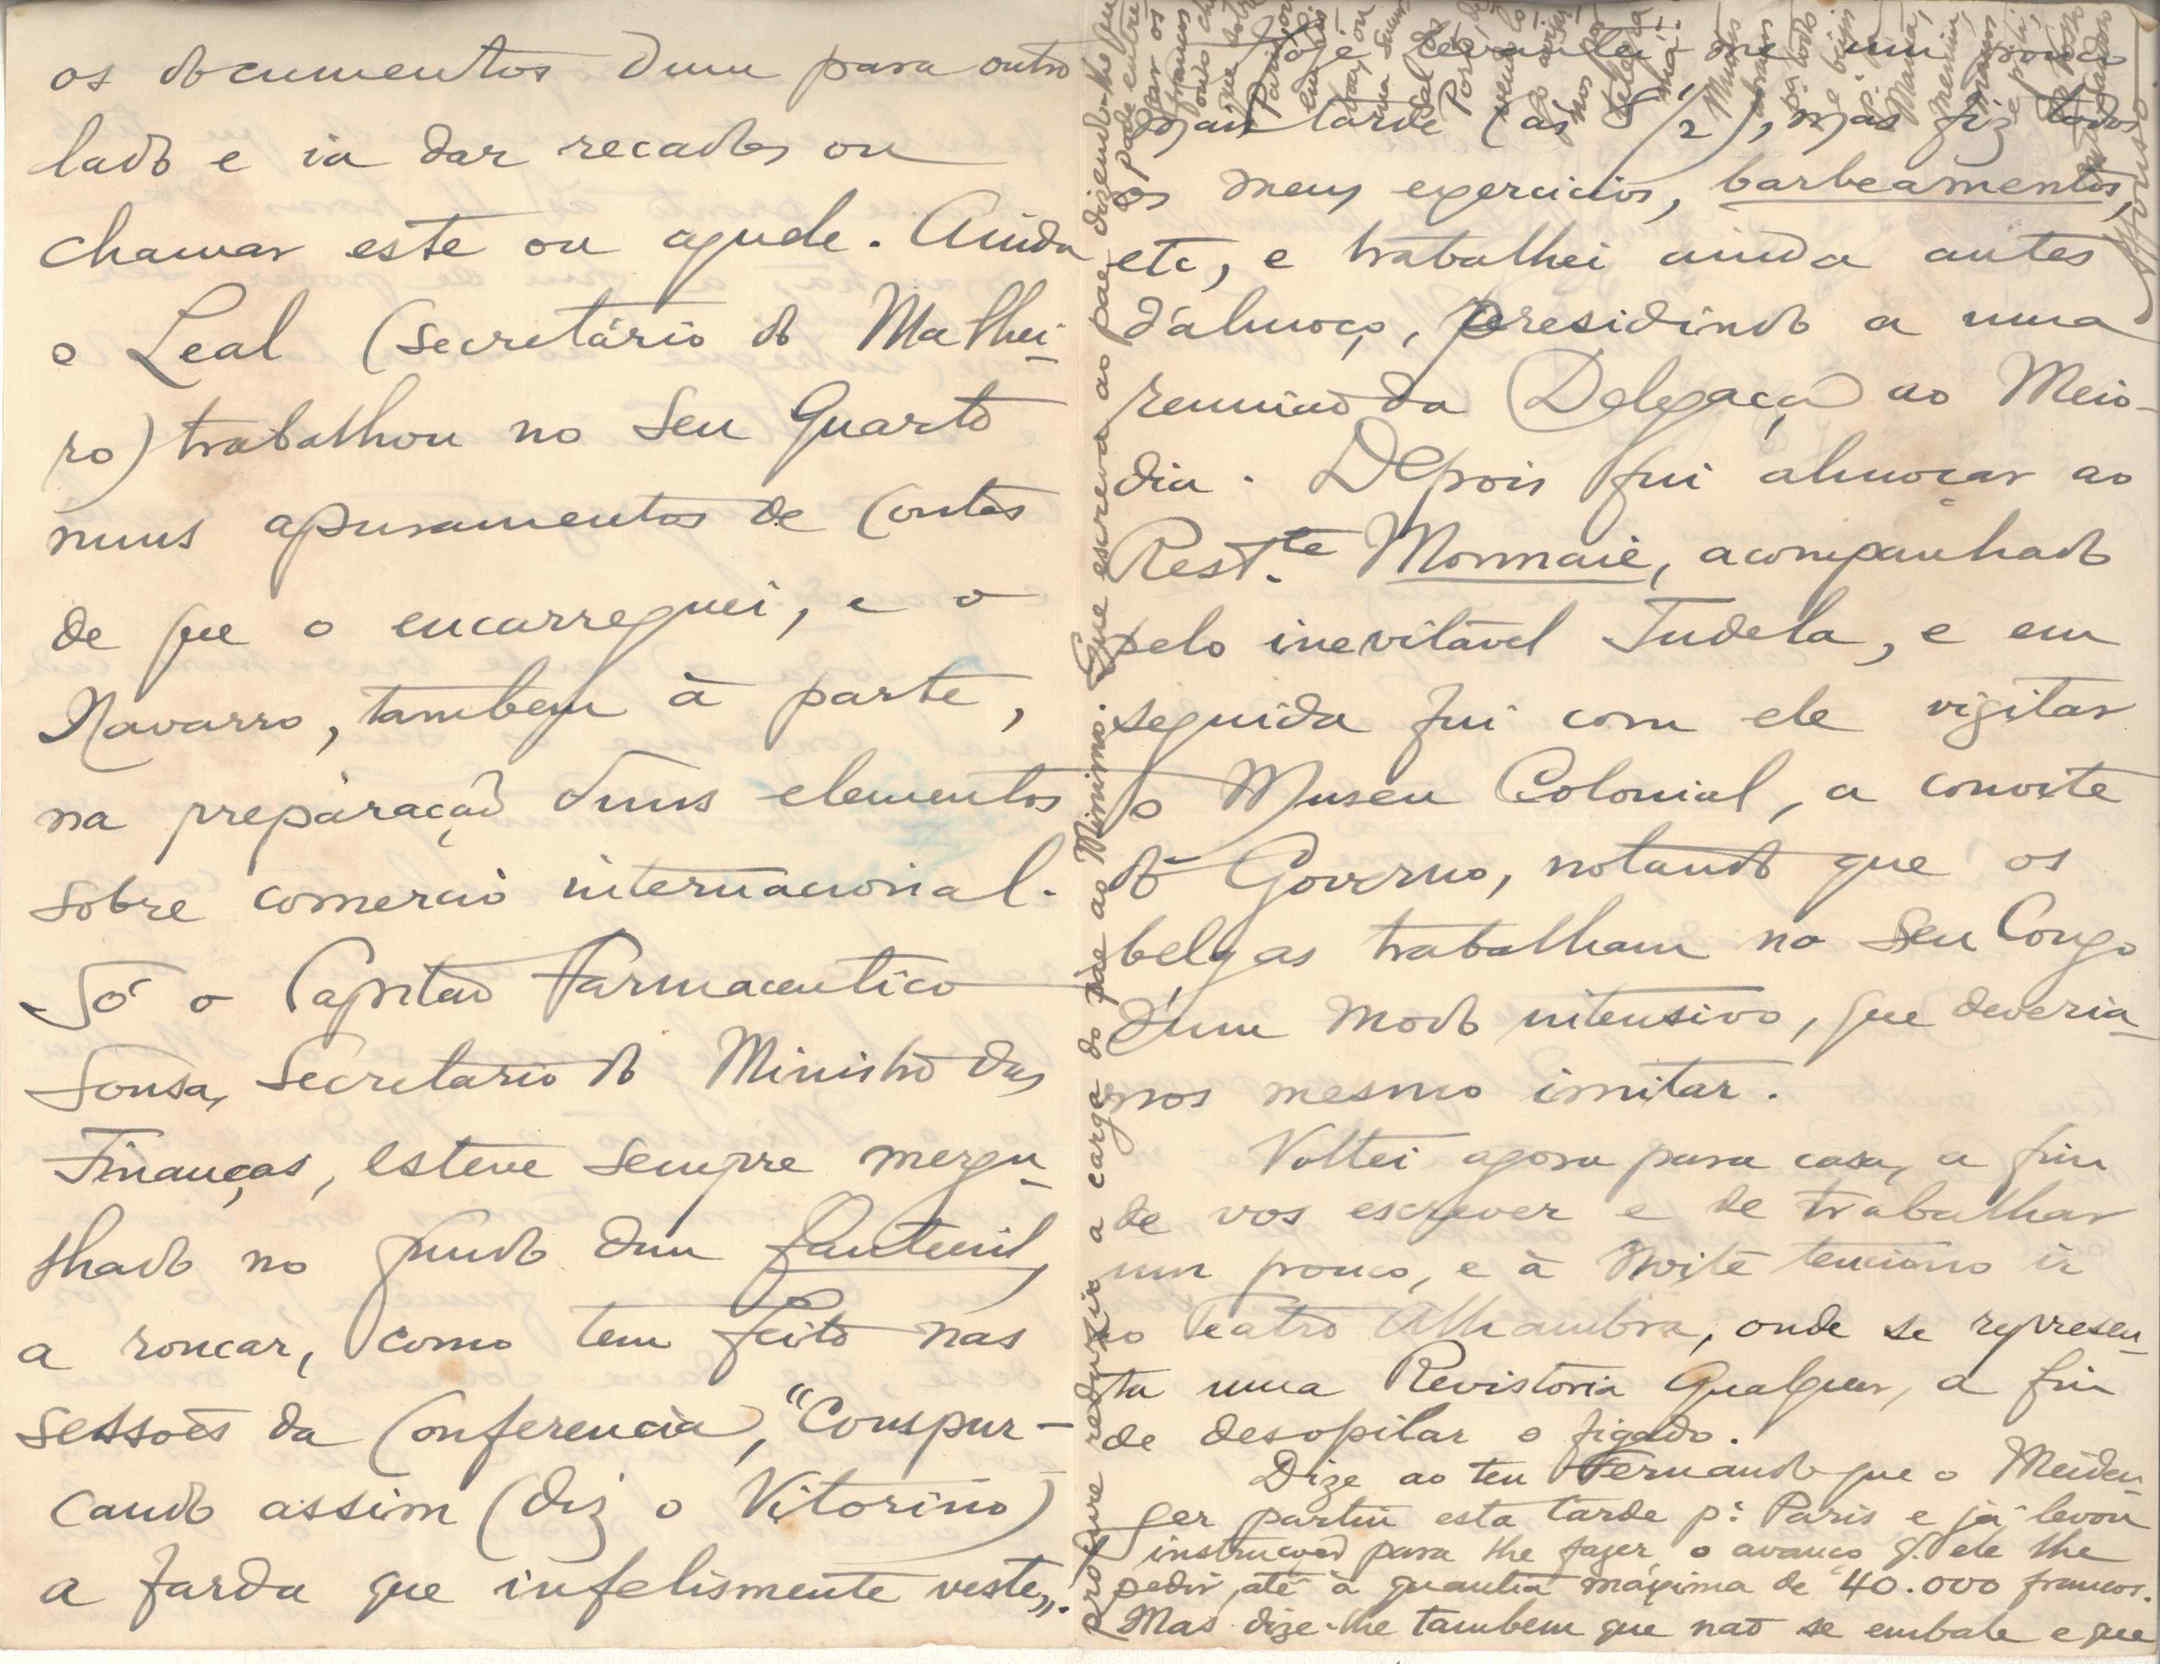 os documentos dum para outro
lado e ia dar recados ou
chamar este ou aquele. Ainda
o Leal (secretário do Malhei-
ro) trabalhou no seu quarto
nuns apuramentos de contas
de que o encarreguei, e o
Navarro, tambem à parte,
na preparação duns elementos
sobre comercio internacional.
Só o Capitão Farmaceutico
Sousa, Secretario do Ministro das
Finanças, esteve sempre mergu-
lhado no fundo dum fauteuil,
a roncar, como tem feito nas
sessões da Conferencia, "Conspur-
cando assim (diz o Vitorino)
a farda que infelismente veste".
Hoje levantei-me um pouco
mais tarde (ás 8 1/2), mas fiz todos
os meus exercicios, barbeamentos,
etc, e trabalhei ainda antes
d'almoço, presidindo a uma
reunião da Delegação ao Meio-
dia. Depois fui almoçar ao
Rest.te Monnaie, acompanhado
pelo inevitável Tudela, e em
seguida fui com ele visitar
o Museu Colonial, a convite
do Governo, notando que os
belgas trabalham no seu Congo
d'um modo intensivo, que deveria-
mos mesmo imitar.
Voltei agora para casa, a fim
de vos escrever e de trabalhar
um pouco, e à noite tenciono ir
ao Teatro Alhambra, onde se represen-
ta uma Revistoria qualquer, a fim
de desopilar o figado.
Dize ao teu Fernando que o Meiden-
ger partiu esta tarde p.ª Paris e já levou
instrucções para lhe fazer o avanço q. ele lhe
pedir, até à quantia máxima de 40.000 francos.
Mas dize-lhe tambem que não se embale e que
procure reduzir a carga do pae ao Minimo. Que escreva ao pae dizendo-lhe
Affonso